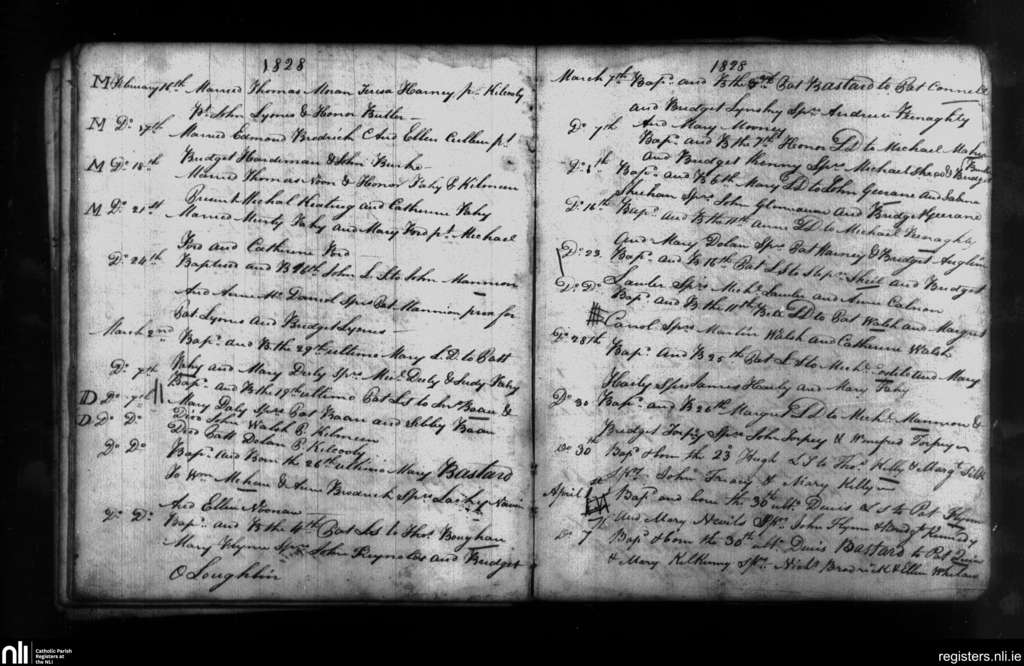 1828
M February 16th Married Thomas Moran Teresa Harney p. Kilcooly
Wt. John Lyons & Honor Butler
M Do. 17th Married Edmond Brodrick C And Ellen Cullen pt.
Bridget Hardiman & John Burke
M Do. 18th Married Thomas Noon & Honor Fahy P. Kilmeen
Present Michael Keating and Catherine Fahy
M Do. 21st Married Murty Fahy and Mary Ford pt. Michael
Ford and Catherine Ford
Do. 24th Baptised and B John L. S to John Mannion
And Anne Mc Daniel Sprs Pat Mannion prox for
Pat Lyons and Bridget Lyons
March 2nd Bap. and B. the 29th ultimo Mary L. D. to Patt
Fahy and Mary Daly Sprs Mic. Daly & Judy Fahy
Do. 7th Bap. and B the 19th ultimo Pat Ls to Baan &
Mary Daly Sprs Pat Baan and Sibby Baan
D Do. Died John Walsh P. Kilmeen
D Do. Do. Died Patt Dolan P. Kilcooly
Do. Do. Bap. and Born the 26th ultimo Mary Bastard
To Wm Mehan & Ann Brodrick Sprs
And Ellen Noonan
Do. Do. Bap. and B the 4th Pat Ls to Thos. Boughan
Mary Flynn Sprs John Reynolds and Bridget
O Loughlin
1828
March 7th Bap. and B the Pat Bastard to Pat Connell
and Bridget Lynskey Sprs Andrew Fenaghty
And Mary Mooney
Do. 7th Bap. and B the 7th Honor LD to Michael
and Bridget Sprs Michael & Bridget
Bap. and B 6th Mary LD to John Geerane and Sabina
Sheehan Sprs John and Bridget Geerane
Do. 16th Bap. and B the 11th Anne LD to Michael Fenaghty
And Mary Dolan Sprs Pat Harney & Bridget
Do. 23 Bap. and B 16th Pat L S to Step. Sheil and Bridget
Lawler Sprs Mich. Lawler and Anne
Do. Do. Bap. and B the 11th LD to Pat Walsh and Margret
Carrol Sprs Martin Walsh and Catherine Walsh
Do. 28th Bap. And B 25th Pat L S to Mich. and Mary
Healy Sprs James Healy and Mary Fahy
Do. 30 Bap. and B 26th Margret LD to Mich. Mannion &
Bridget Torpey Sprs John Torpey & Winefred Torpey
Do. 30th Bap. & born the 23d Hugh L S to Thos. Kelly & Margt.
Sprs. John & Mary Kelly
April Bap. and born the 30th ult. Denis L S to Pat Flynn
and Mary Nevils Sprs. John Flynn & Bridgt Kennedy
Do. 7 Bap. & born the 30th ult. Denis Bastard to Pat Quin
& Mary Kilkenny Sprs. Nichs. Brodrick & Ellen
nli
Catholic Parish
Registers at
the NLI
registers.nli.ie